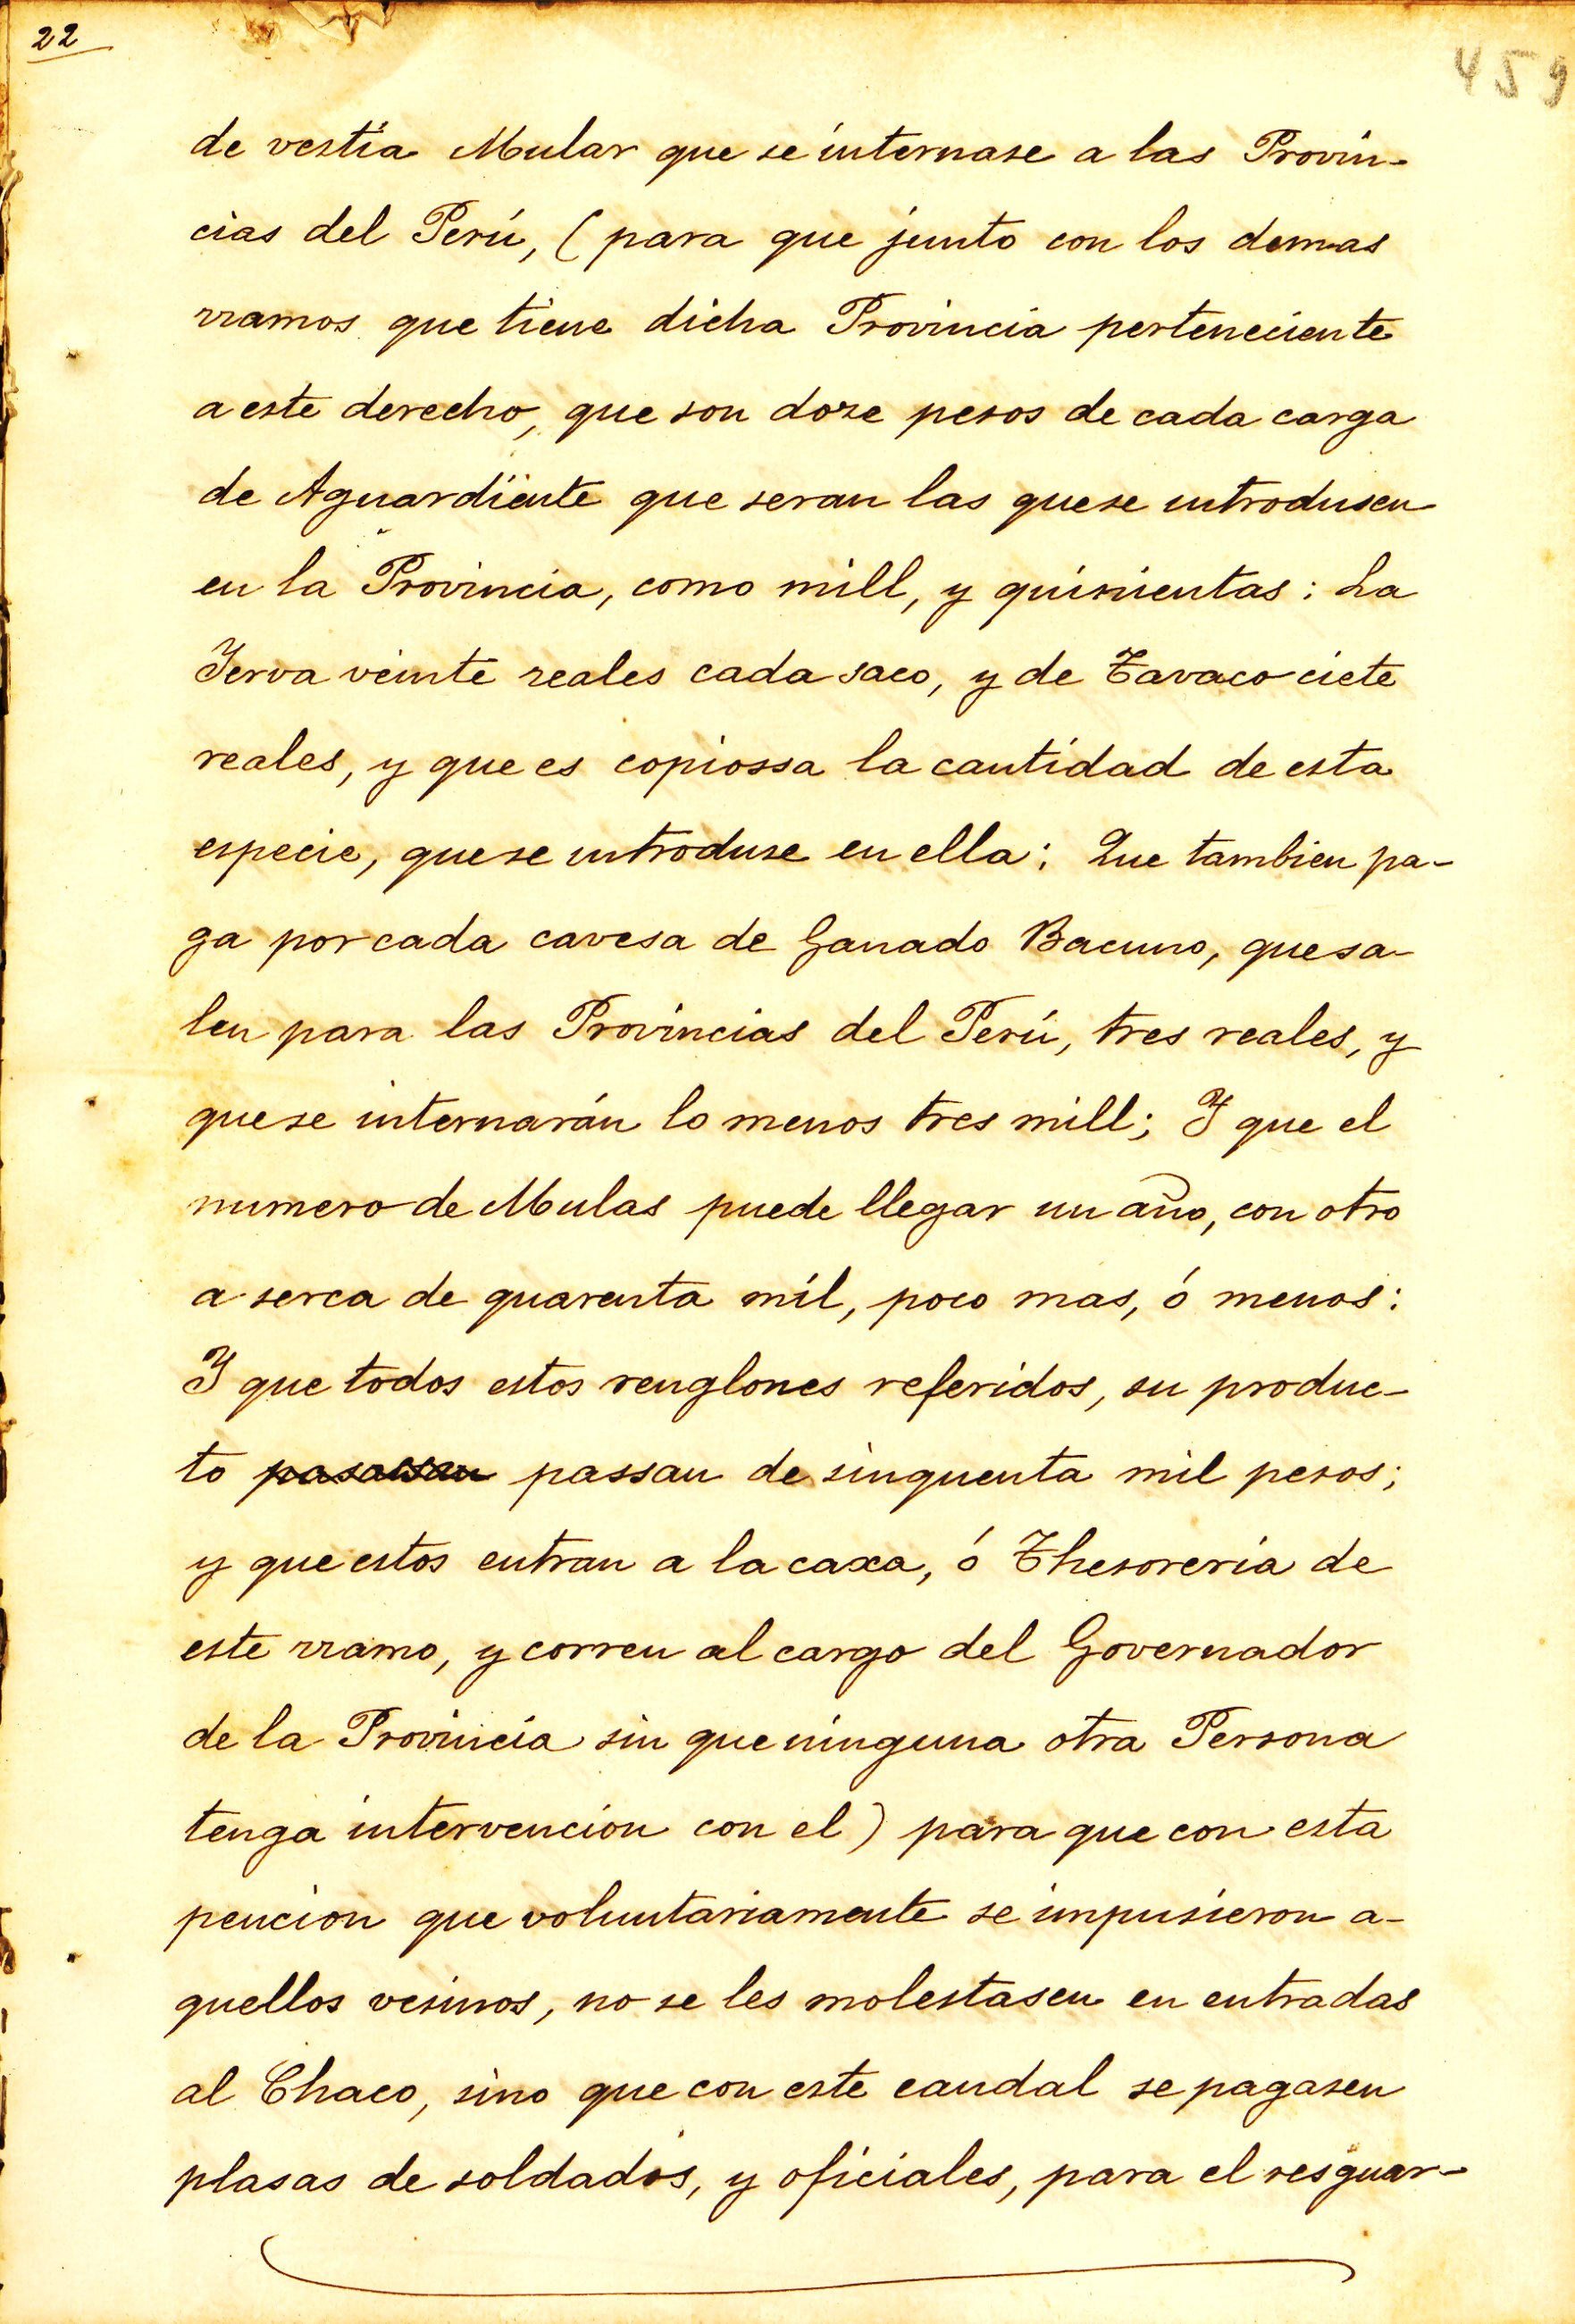 22
459
de vestia Mular que se internase a las Provin-
cias del Perú, (para que junto con los demas
rramos que tiene dicha Provincia perteneciente
a este derecho, que son doze pesos de cada carga
de Aguardiente que seran las quese introdusen
en la Provincia, como mill, y quinientas: La
Yerva veinte reales cada saco, y de Tavaco ciete
reales, y que es copiossa la cantidad de esta
especie, quese introduse en ella: Que tambien pa-
ga por cada cavesa de Ganado Bacuno, que sa-
len para las Provincias del Perú, tres reales, y
quese internarán lo menos tres mill; Y que el
numero de Mulas puede llegar un año, con otro
a serca de quarenta mil, poco mas, ó menos:
Y que todos estos renglones referidos, su produc-
to passan de sinquenta mil pesos;
y que estos entran a la caxa, ó Thesoreria de
este rramo, y corren al cargo del Governador
de la Provincia sin que ninguna otra Persona
tenga intervencion con el) para que con esta
pencion que voluntariamente se inpusieron a-
quellos vesinos, no se les molestasen en entradas
al Chaco, sino que con este caudal se pagasen
plasas de soldados, y oficiales, para el resguar-